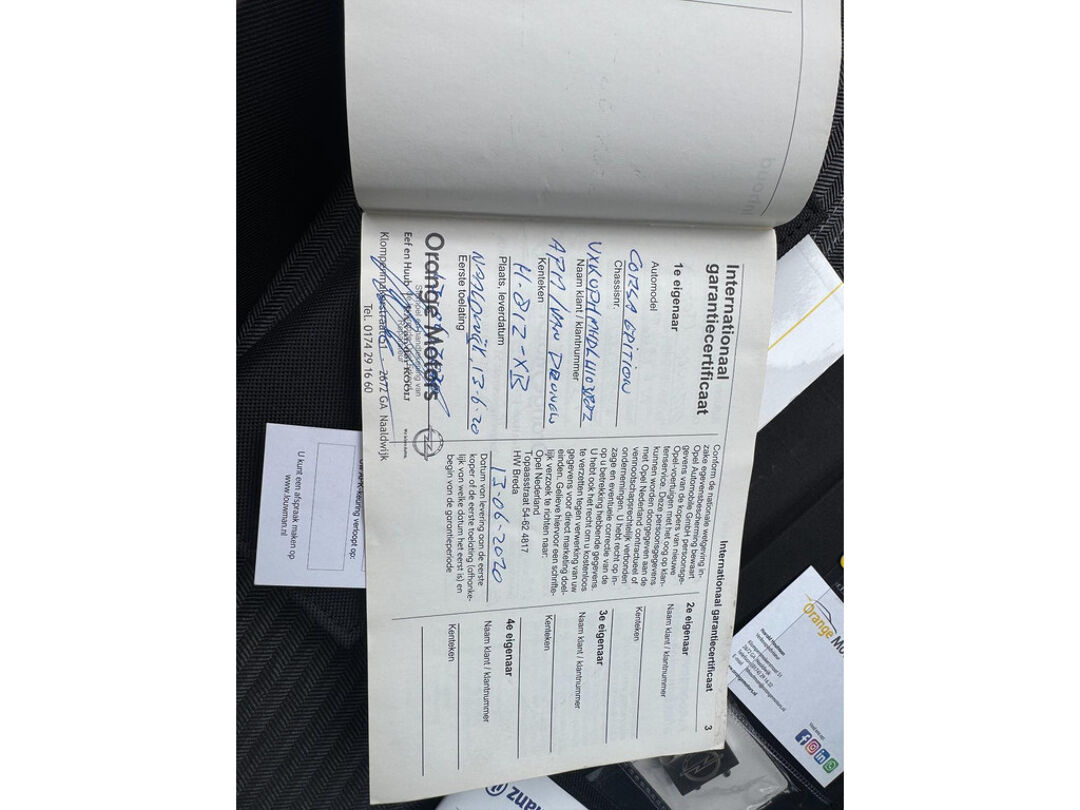 Internationaal
garantiecertificaat
1e eigenaar
Automodel
CORSA EDITION
Chassisnr.
Naam klant / klantnummer
Kenteken
H-812-XB
Plaats, leverdatum
NAALDWIJK, 13-6-20
Eerste toelating
Orange Motors
Eef en Huub
Klompenmakerstraat 51 2672 GA Naaldwijk
Tel. 0174 29 16 60
Internationaal garantiecertificaat 3
Conform de nationale wetgeving in-
zake gegevensbescherming bewaart
Opel Automobile GmbH persoonsge-
gevens van de kopers van nieuwe
Opel-voertuigen met het oog op klan-
tenservice. Deze persoonsgegevens
kunnen worden doorgegeven aan de
met Opel Nederland contractueel of
vennootschapsrechtelijk verbonden
ondernemingen. U hebt recht op in-
zage en eventuele correctie van de
op u betrekking hebbende gegevens.
U hebt ook het recht om u kosteloos
te verzetten tegen verwerking van uw
gegevens voor direct marketing doel-
einden. Gelieve hiervoor een schrifte-
lijk verzoek te richten naar:
Opel Nederland
Topaasstraat 54-62 4817
HW Breda
13-06-2020
Datum van levering aan de eerste
koper of de eerste toelating (afhanke-
lijk van welke datum het eerst is) en
begin van de garantieperiode
2e eigenaar
Naam klant / klantnummer
Kenteken
3e eigenaar
Naam klant / klantnummer
Kenteken
4e eigenaar
Naam klant / klantnummer
Kenteken
APK-keuring verloopt op:
U kunt een afspraak maken op
www.louwman.nl
Orange